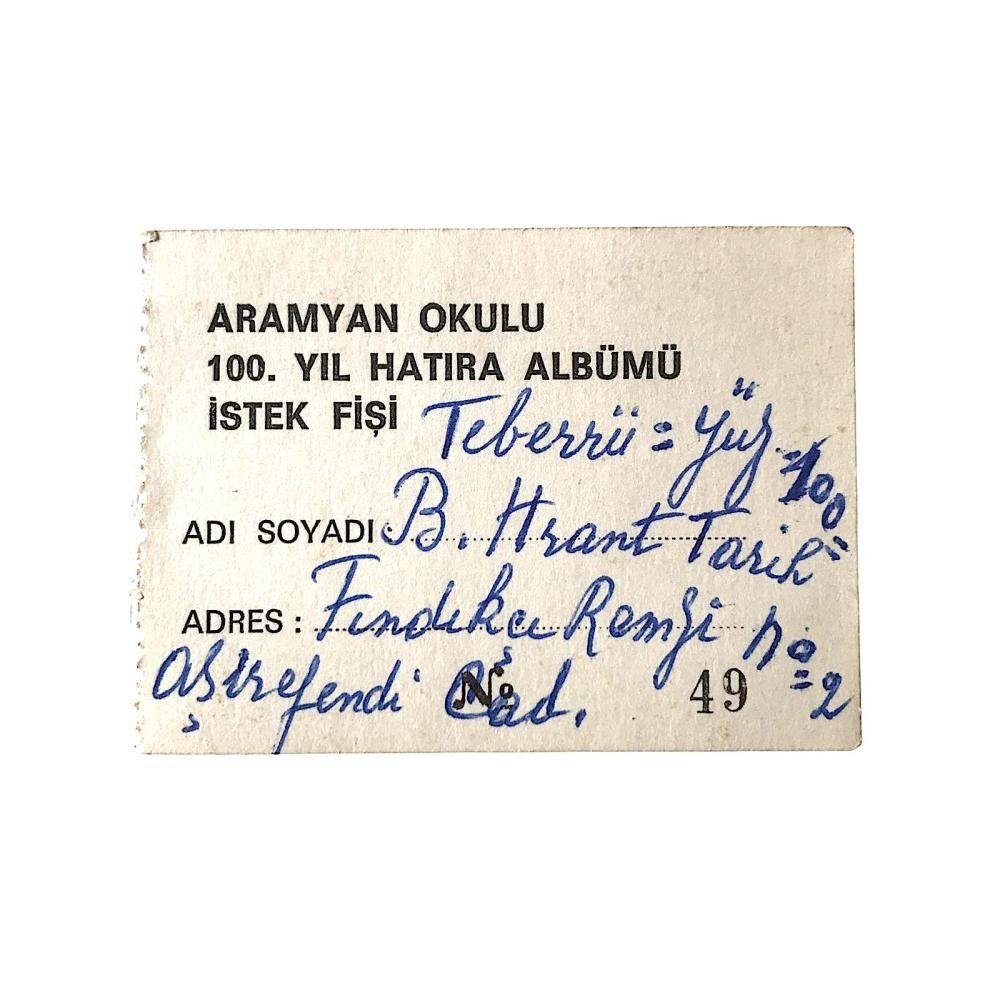 ARAMYAN OKULU
100. YIL HATIRA ALBÜMÜ
İSTEK FİŞİ Teberrü = Yüz =100=
ADI SOYADI: B. Hrant Tarih
ADRES: Fındıkçı Remzi No=2
Aşirefendi Cad. No 49